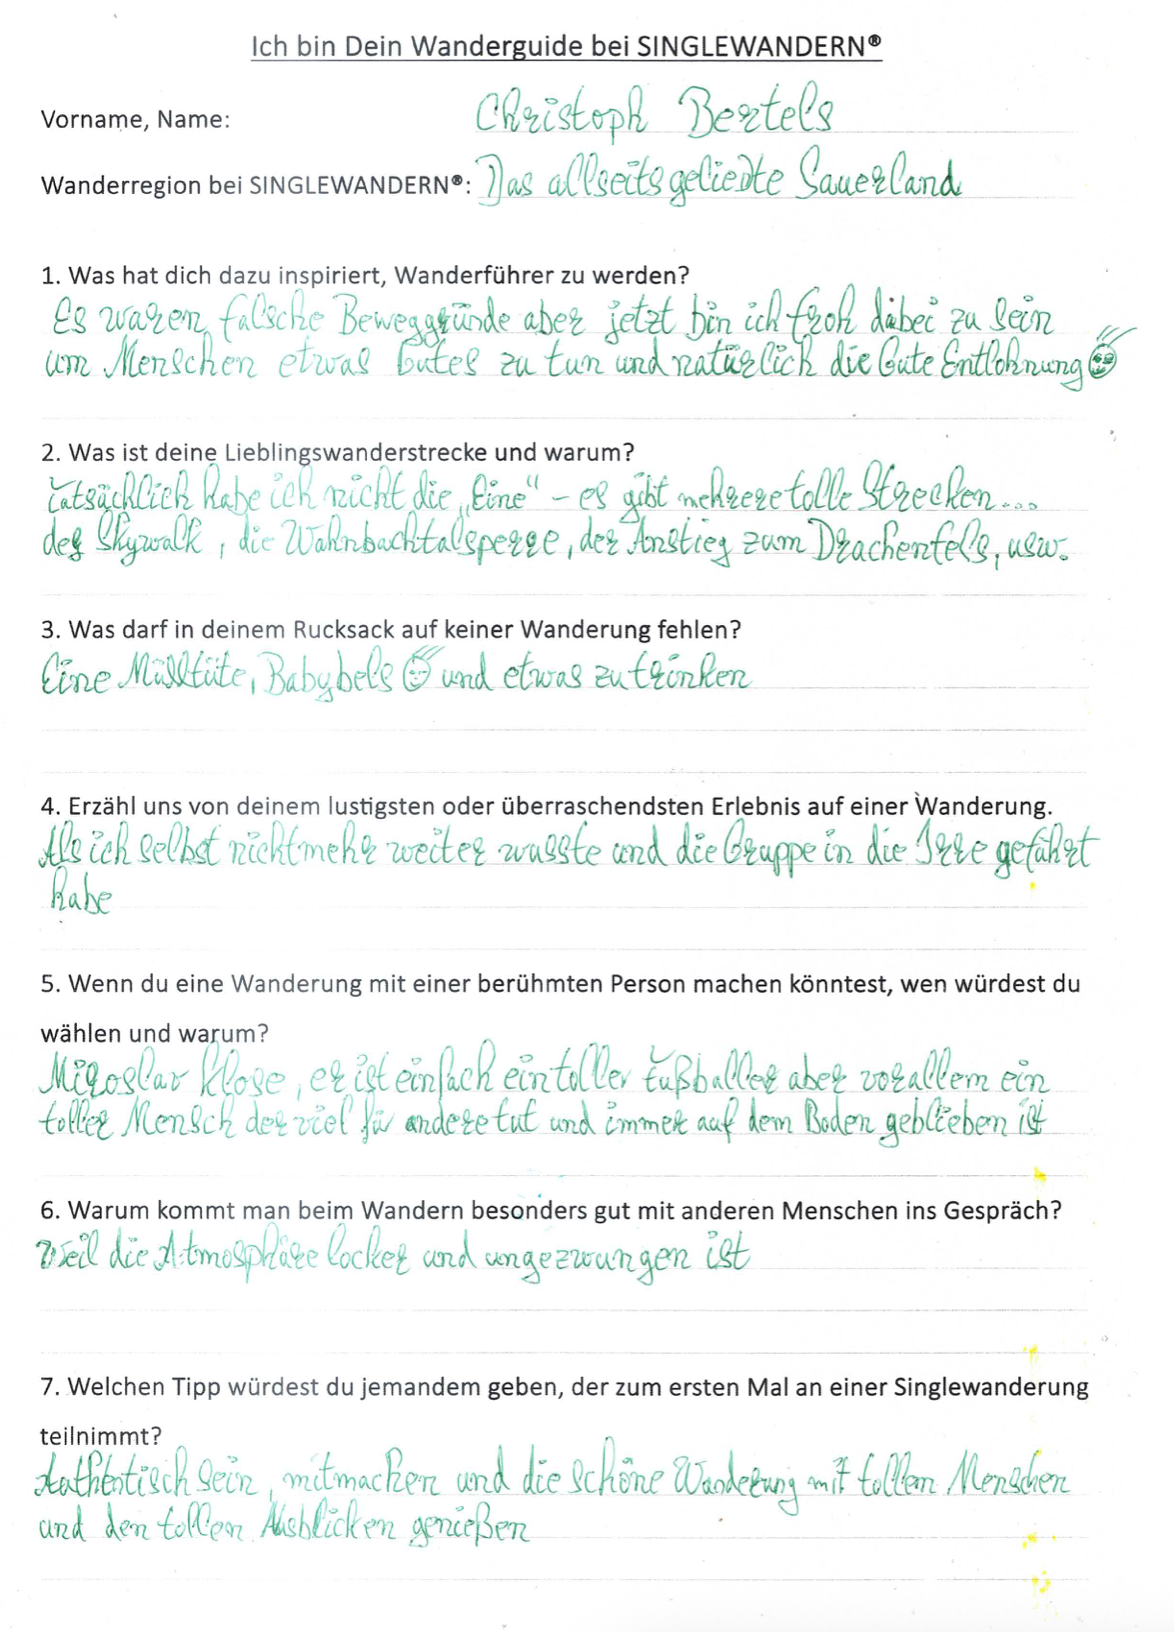 Ich bin Dein Wanderguide bei SINGLEWANDERN®
Vorname, Name: Christoph Bertels
Wanderregion bei SINGLEWANDERN®: Das allseits geliebte Sauerland
1. Was hat dich dazu inspiriert, Wanderführer zu werden?
Es waren falsche Beweggründe aber jetzt bin ich froh dabei zu sein
um Menschen etwas Gutes zu tun und natürlich die Gute Entlohnung
2. Was ist deine Lieblingswanderstrecke und warum?
Tatsächlich habe ich nicht die „Eine“ – es gibt mehrere tolle Strecken...
der Skywalk, die Wahnbachtalsperre, der Anstieg zum Drachenfels, usw.
3. Was darf in deinem Rucksack auf keiner Wanderung fehlen?
Eine Mülltüte, Babybels und etwas zu trinken
4. Erzähl uns von deinem lustigsten oder überraschendsten Erlebnis auf einer Wanderung.
Als ich selbst nicht mehr weiter wusste und die Gruppe in die Irre geführt
habe
5. Wenn du eine Wanderung mit einer berühmten Person machen könntest, wen würdest du
wählen und warum?
Miroslav Klose, er ist einfach ein toller Fußballer aber vorallem ein
toller Mensch der viel für andere tut und immer auf dem Boden geblieben ist
6. Warum kommt man beim Wandern besonders gut mit anderen Menschen ins Gespräch?
Weil die Atmosphäre locker und ungezwungen ist
7. Welchen Tipp würdest du jemandem geben, der zum ersten Mal an einer Singlewanderung
teilnimmt?
sein, mitmachen und die schöne Wanderung mit tollen Menschen
und den tollen Ausblicken genießen